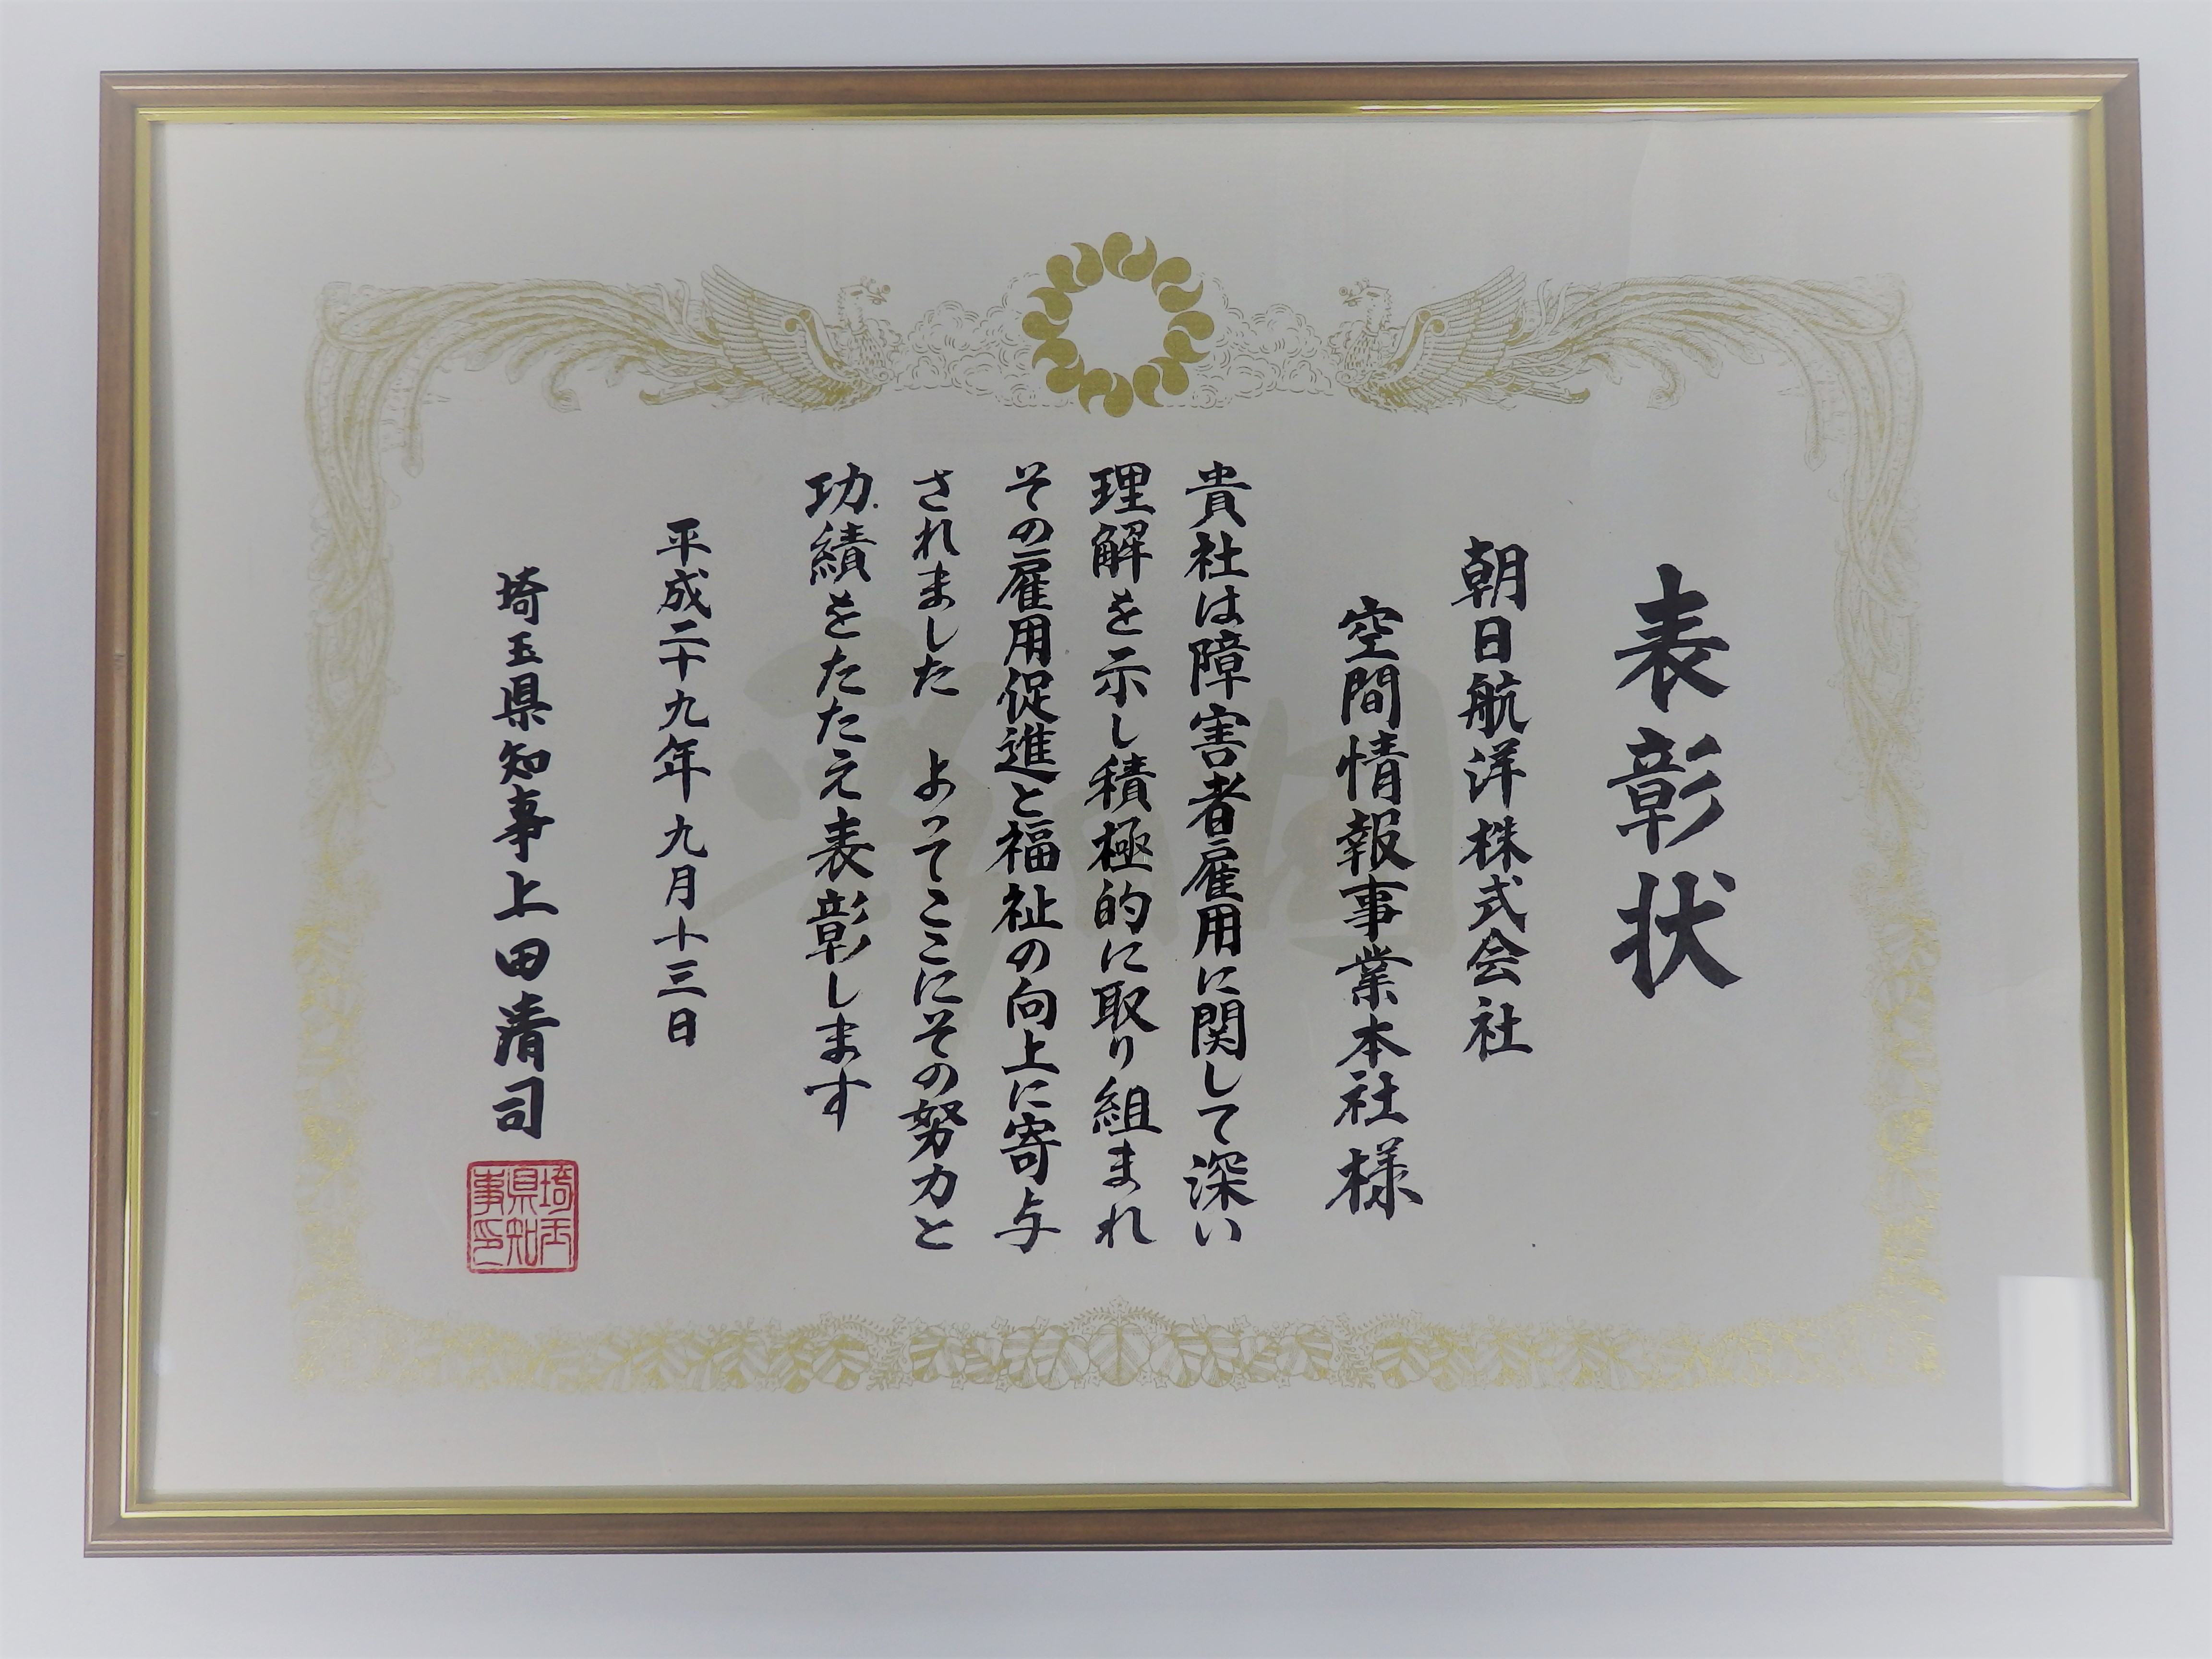 表彰状
朝日航洋株式会社
空間情報事業本社様
貴社は障害者雇用に関して深い
理解を示し積極的に取り組まれ
その雇用促進と福祉の向上に寄与
されました　よってここにその努力と
功績をたたえ表彰します
平成二十九年九月十三日
埼玉県知事上田清司
埼玉
県知
事印